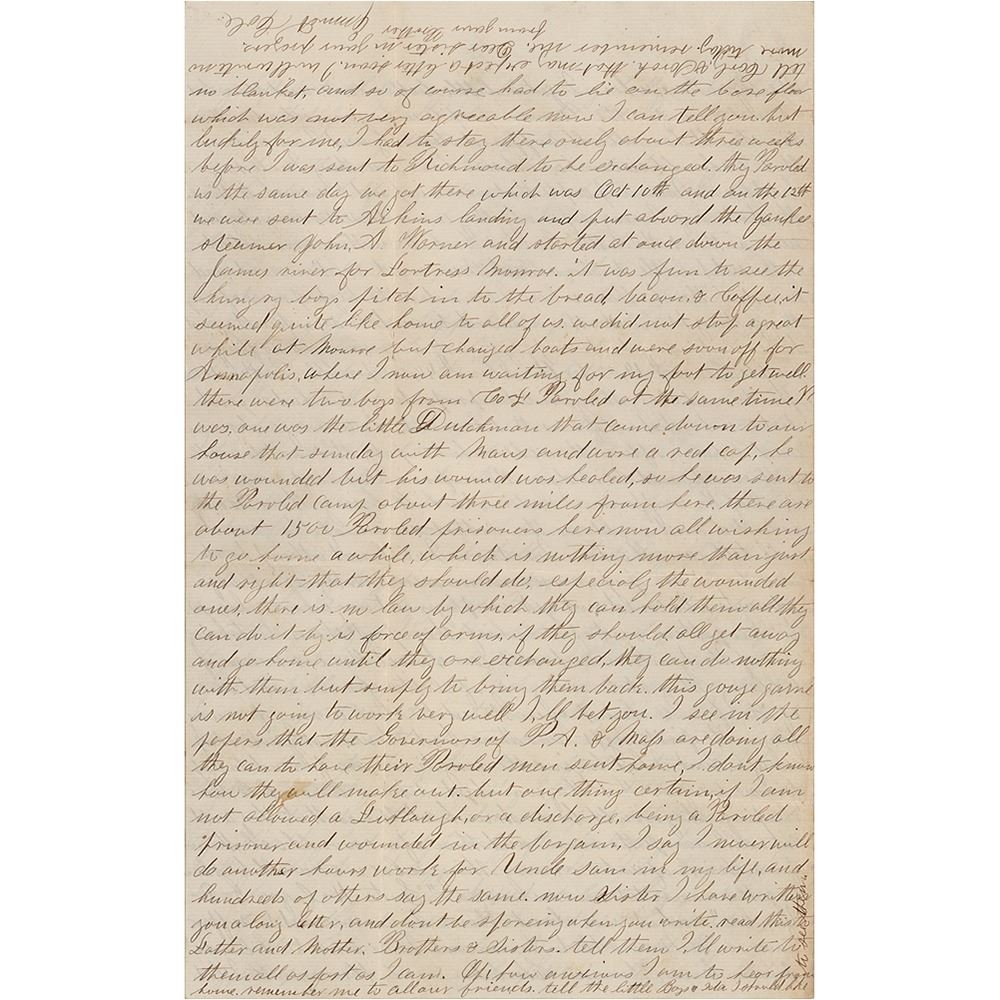 no blanket, and so of course had to lie on the bare floor
which was not very agreeable now I can tell you. but
luckily for me, I had to stay there only about three weeks
before I was sent to Richmond to be exchanged. they Paroled
us the same day we got there which was Oct 10th and on the 12th
we were sent to Aikins landing and put aboard the Yankee
steamer John, A. Warner and started at once down the
James river for Fortress Monroe. it was fun to see the
hungry boys pitch in to the bread, bacon, & Coffee, it
seemed quite like home to all of us. we did not stop a great
while at Monroe but changed boats and were soon off for
Annapolis, where I now am waiting for my foot to get well.
there were two boys from Co Paroled at the same time I
was, one was the little Dutchman that came down to our
house that sunday with Maus and wore a red cap, he
was wounded but his wound was healed, so he was sent to
the Parold camp about three miles from here. there are
about 1500 Paroled prisoners here now all wishing
to go home awhile, which is nothing more than just
and right that they should do, especialy the wounded
ones, there is no law by which they can hold them all they
can do it by is force of arms, if they should all get away
and go home until they are exchanged, they can do nothing
with them but simply to bring them back. this gouge game
is not going to work very well I,ll bet you. I see in the
papers that the Governors of P.A. & Mass are doing all
they can to have their Paroled men sent home, I dont know
how they will make out. but one thing certain, if I am
not allowed a Furlaugh, or a discharge, being a Paroled
prisoner and wounded in the bargain, I say I never will
do another hours work for Uncle sam in my life, and
hundreds of others say the same. now Sister I have written
you a long letter, and dont be spareing when you write. read this to
Father and Mother, Brothers & Sisters. tell them I'll write to
them all as fast as I can. Oh how anxious I am to hear from
home. remember me to all our friends. tell the little Boys & Ida I should like
to see them.
tell Carl & Sarah that may expect a letter soon. I will write no
more today. remember me. Dear sister in your prayers.
from your Brother
Cole